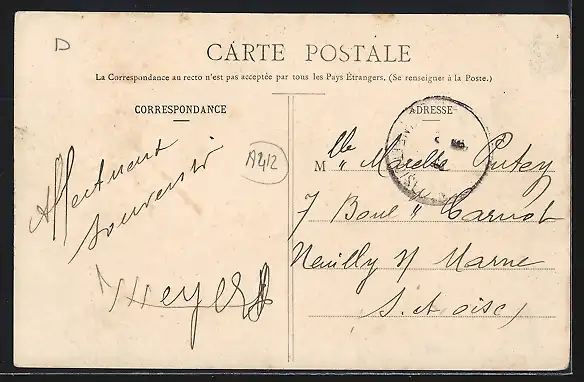 D
CARTE POSTALE
La Correspondance au recto n'est pas acceptée par tous les Pays Étrangers. (Se renseigner à la Poste.)
CORRESPONDANCE
Souvenir
Meyer
A212
ADRESSE
Mlle " Marcelle Putey
7 Boul " Carnot
Neuilly s/ Marne
S. et oise